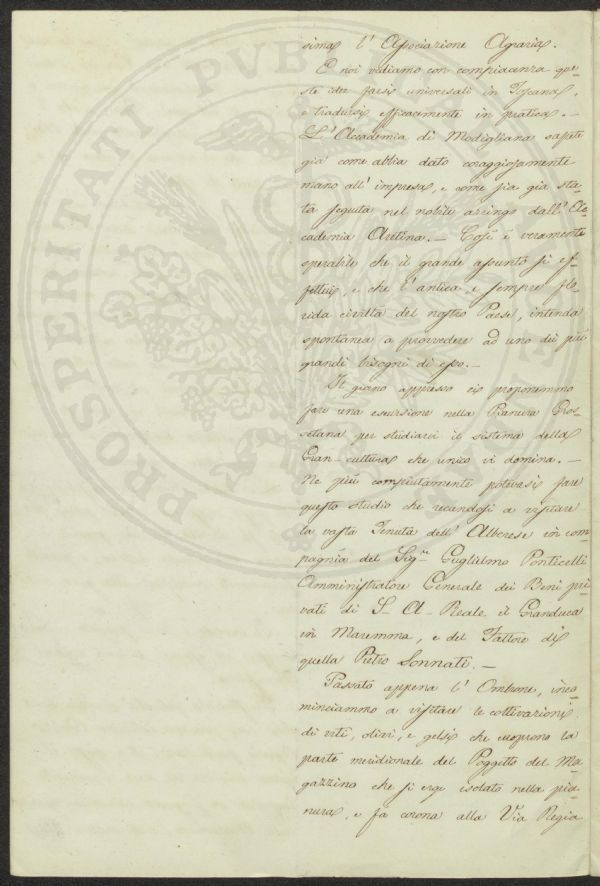 PROSPERITATI PVBLICAE
sima l'Associazione Agraria.
E noi vediamo con compiacenza que-
ste idee farsi universali in Toscana,
e tradursi efficacemente in pratica. –
L'Accademia di Modigliana sapete
già come abbia dato coraggiosamente
mano all'impresa, e come sia già sta-
ta seguita nel nobile aringo dall'Ac-
cademia Aretina. – Così è veramente
sperabile che il grande assunto si ef-
fettui, e che l'antica, e sempre flo-
rida civiltà del nostro Paese, intenda
spontanea a provvedere ad uno dei più
grandi bisogni di esso. –
Il giorno appresso ci proponemmo
fare una escursione nella Pianura Gros-
setana per studiarvi il sistema della
Gran-cultura che unico vi domina. –
Ne più compiutamente potevasi fare
questo studio che recandosi a visitare
la vasta Tenuta dell'Alberese in com-
pagnia del Sig.re Guglielmo Ponticelli
Amministratore Generale dei Beni pri-
vati di S. A. Reale il Granduca
in Maremma, e del Fattore di
quella Pietro Sonnati. –
Passato appena l'Ombrone, inco-
minciammo a visitare le coltivazioni
di viti, olivi, e gelsi che cuoprono la
parte meridionale del Poggetto del Ma-
gazzino che si erge isolato nella pia-
nura, e fa corona alla Via Regia